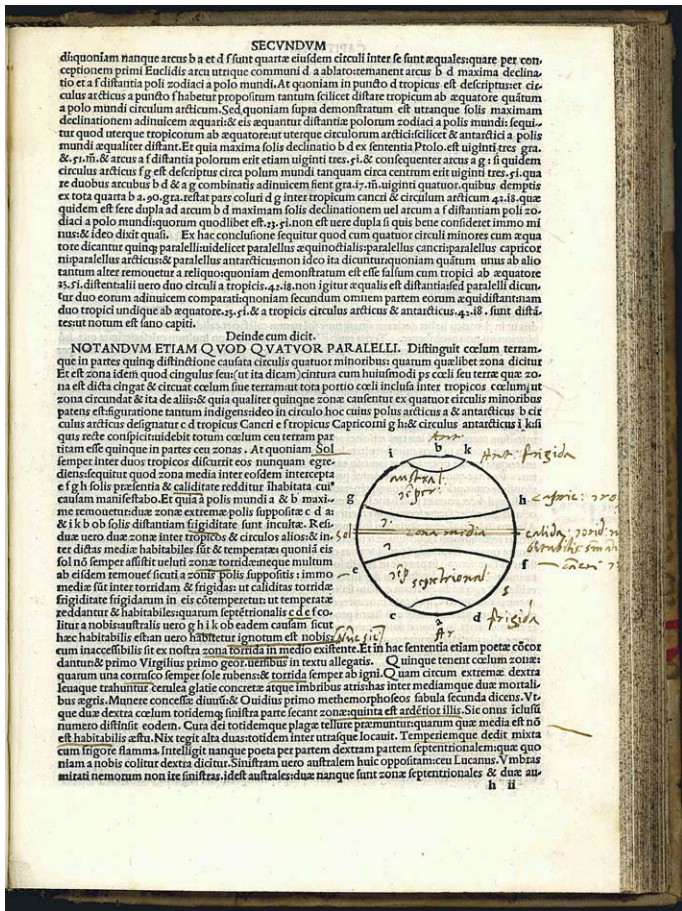 SECVNDVM
di:quoniam nanque arcus b a et d f sunt quartæ eiusdem circuli inter se sunt æquales:quare per con,
ceptionem primi Euclidis arcu utrique communi d a ablato:remanent arcus b d maxima declina,
tio et a f distantia poli zodiaci a polo mundi. At quoniam in puncto d tropicus est descriptus:et cir,
culus arcticus a puncto f habetur propositum tantum scilicet distare tropicum ab æquatore quātum
a polo mundi circulum arcticum. Sed quoniam supra demonstratum est utranque solis maximam
declinationem adinuicem æquari:& eis æquantur distantiæ polorum zodiaci a polis mundi: sequi,
tur quod uterque tropicorum ab æquatore:ut uterque circulorum arctici:scilicet & antarctici a polis
mundi æqualiter distant. Et quia maxima solis declinatio b d ex sententia Ptolo.est uiginti tres gra.
&.51.m̄.& arcus a f distantia polorum erit etiam uiginti tres.51.& consequenter arcus a g : si quidem
circulus arcticus f g est descriptus circa polum mundi tanquam circa centrum erit uiginti tres.51.qua
re duobus arcubus b d & a g combinatis adinuicem fient gra.47.m̄.uiginti quatuor.quibus demptis
ex tota quarta b a.90.gra.restat pars coluri d g inter tropicum cancri & circulum arcticum 42.18.quæ
quidem est fere dupla ad arcum b d maximam solis declinationem uel arcum a f distantiam poli zo,
diaci a polo mundi:quorum quodlibet est.23.51.non est uere dupla si quis bene consideret immo mi
nus:& ideo dixit quasi. Ex hac conclusione sequitur quod cum quatuor circuli minores cum æqua
tore dicantur quinq; paralleli:uidelicet parallelus æquinoctialis:parallelus cancri:parallelus capricor
ni:parallelus arcticus:& parallelus antarcticus:non ideo ita dicuntur:quoniam quātum unus ab alio
tantum alter remouetur a reliquo:quoniam demonstratum est esse falsum cum tropici ab æquatore
23.51.distent:alii uero duo circuli a tropicis.42.18.non igitur æqualis est distantia:sed paralleli dicun,
tur duo eorum adinuicem comparati:quoniam secundum omnem partem eorum æquidistant:nam
duo tropici undique ab æquatore.23.51.& a tropicis circulus arcticus & antarcticus.42.18. sunt distā,
tes:ut notum est sano capiti.
Deinde cum dicit.
NOTANDVM ETIAM QVOD QVATVOR PARALELLI. Distinguit cœlum terram,
que in partes quinq; distinctione causata circulis quatuor minoribus: quarum quælibet zona dicitur
Et est zona idem quod cingulus seu:(ut ita dicam)cintura cum huiusmodi ps cœli seu terræ quæ zo,
na est dicta cingat & circuat cœlum siue terram:ut tota portio cœli inclusa inter tropicos cœlum;ut
zona circundat & ita de aliis:& quia qualiter quinque zonæ causentur ex quatuor circulis minoribus
patens est:figuratione tantum indigens:ideo in circulo hoc cuius polus arcticus a & antarcticus b cir
culus arcticus designatur c d tropicus Cancri e f tropicus Capricorni g h:& circulus antarcticus i k:si
quis recte conspicit:uidebit totum cœlum ceu terram par
titam esse quinque in partes ceu zonas . At quoniam Sol
semper inter duos tropicos discurrit eos nunquam egre,
diens:sequitur quod zona media inter eosdem intercepta
e f g h solis præsentia & caliditate redditur ihabitata cui'
causam manifestabo.Et quia a polis mundi a & b maxi,
me remouetur:duæ zonæ extremæ polis suppositæ c d a:
& i k b ob solis distantiam frigiditate sunt incultæ. Resi,
duæ uero duæ zonæ inter tropicos & circulos alios:& in,
ter dictas mediæ habitabiles sūt & temperatæ: quoniā eis
sol nō semper assistit ueluti zonæ torridæ:neque multum
ab eisdem remouet' sicuti a zonis polis suppositis : immo
mediæ sūt inter torridam & frigidas: ut caliditas torridæ
frigiditate frigidarum in eis cōtemperetur: ut temperatæ
reddantur & habitabiles:quarum septētrionalis c d e f co,
litur a nobis:australis uero g h i k ob eadem causam sicut
hæc habitabilis est:an uero habitetur ignotum est nobis:
cum inaccessibilis sit ex nostra zona torrida in medio existente.Et in hac sententia etiam poetæ cōcor
dantur:& primo Virgilius primo geor.uersibus in textu allegatis. Quinque tenent cœlum zonæ:
quarum una corrusco semper sole rubens:& torrida semper ab igni. Quam circum extremæ dextra
leuaque trahuntur cerulea glatie concretæ atque imbribus atris:has inter mediamque duæ mortali,
bus ægris. Munere concessæ diuum:& Ouidius primo methemorphoseos fabula secunda dicens. Vt,
que duæ dextra cœlum totidemq; sinistra parte secant zonæ:quinta est ardētior illis. Sic onus iclusū
numero distinxit eodem. Cura dei totidemque plagæ tellure præmuntur:quarum quæ media est nō
est habitabilis æstu. Nix tegit alta duas:totidem inter utrasque locauit. Temperiemque dedit mixta
cum frigore flamma. Intelligit nanque poeta per partem dextram partem septentrionalem:quæ quo
niam a nobis colitur dextra dicitur. Sinistram uero australem huic oppositam:ceu Lucanus. Vmbras
mirati nemorum non ire sinistras.idest australes:duæ nanque sunt zonæ septentrionales & duæ au,
h ii
Ant:
i b k
Ant: frigida
austral:
g h
sol zona media calida
e f
septentrional:
c a d
frigida
Ar